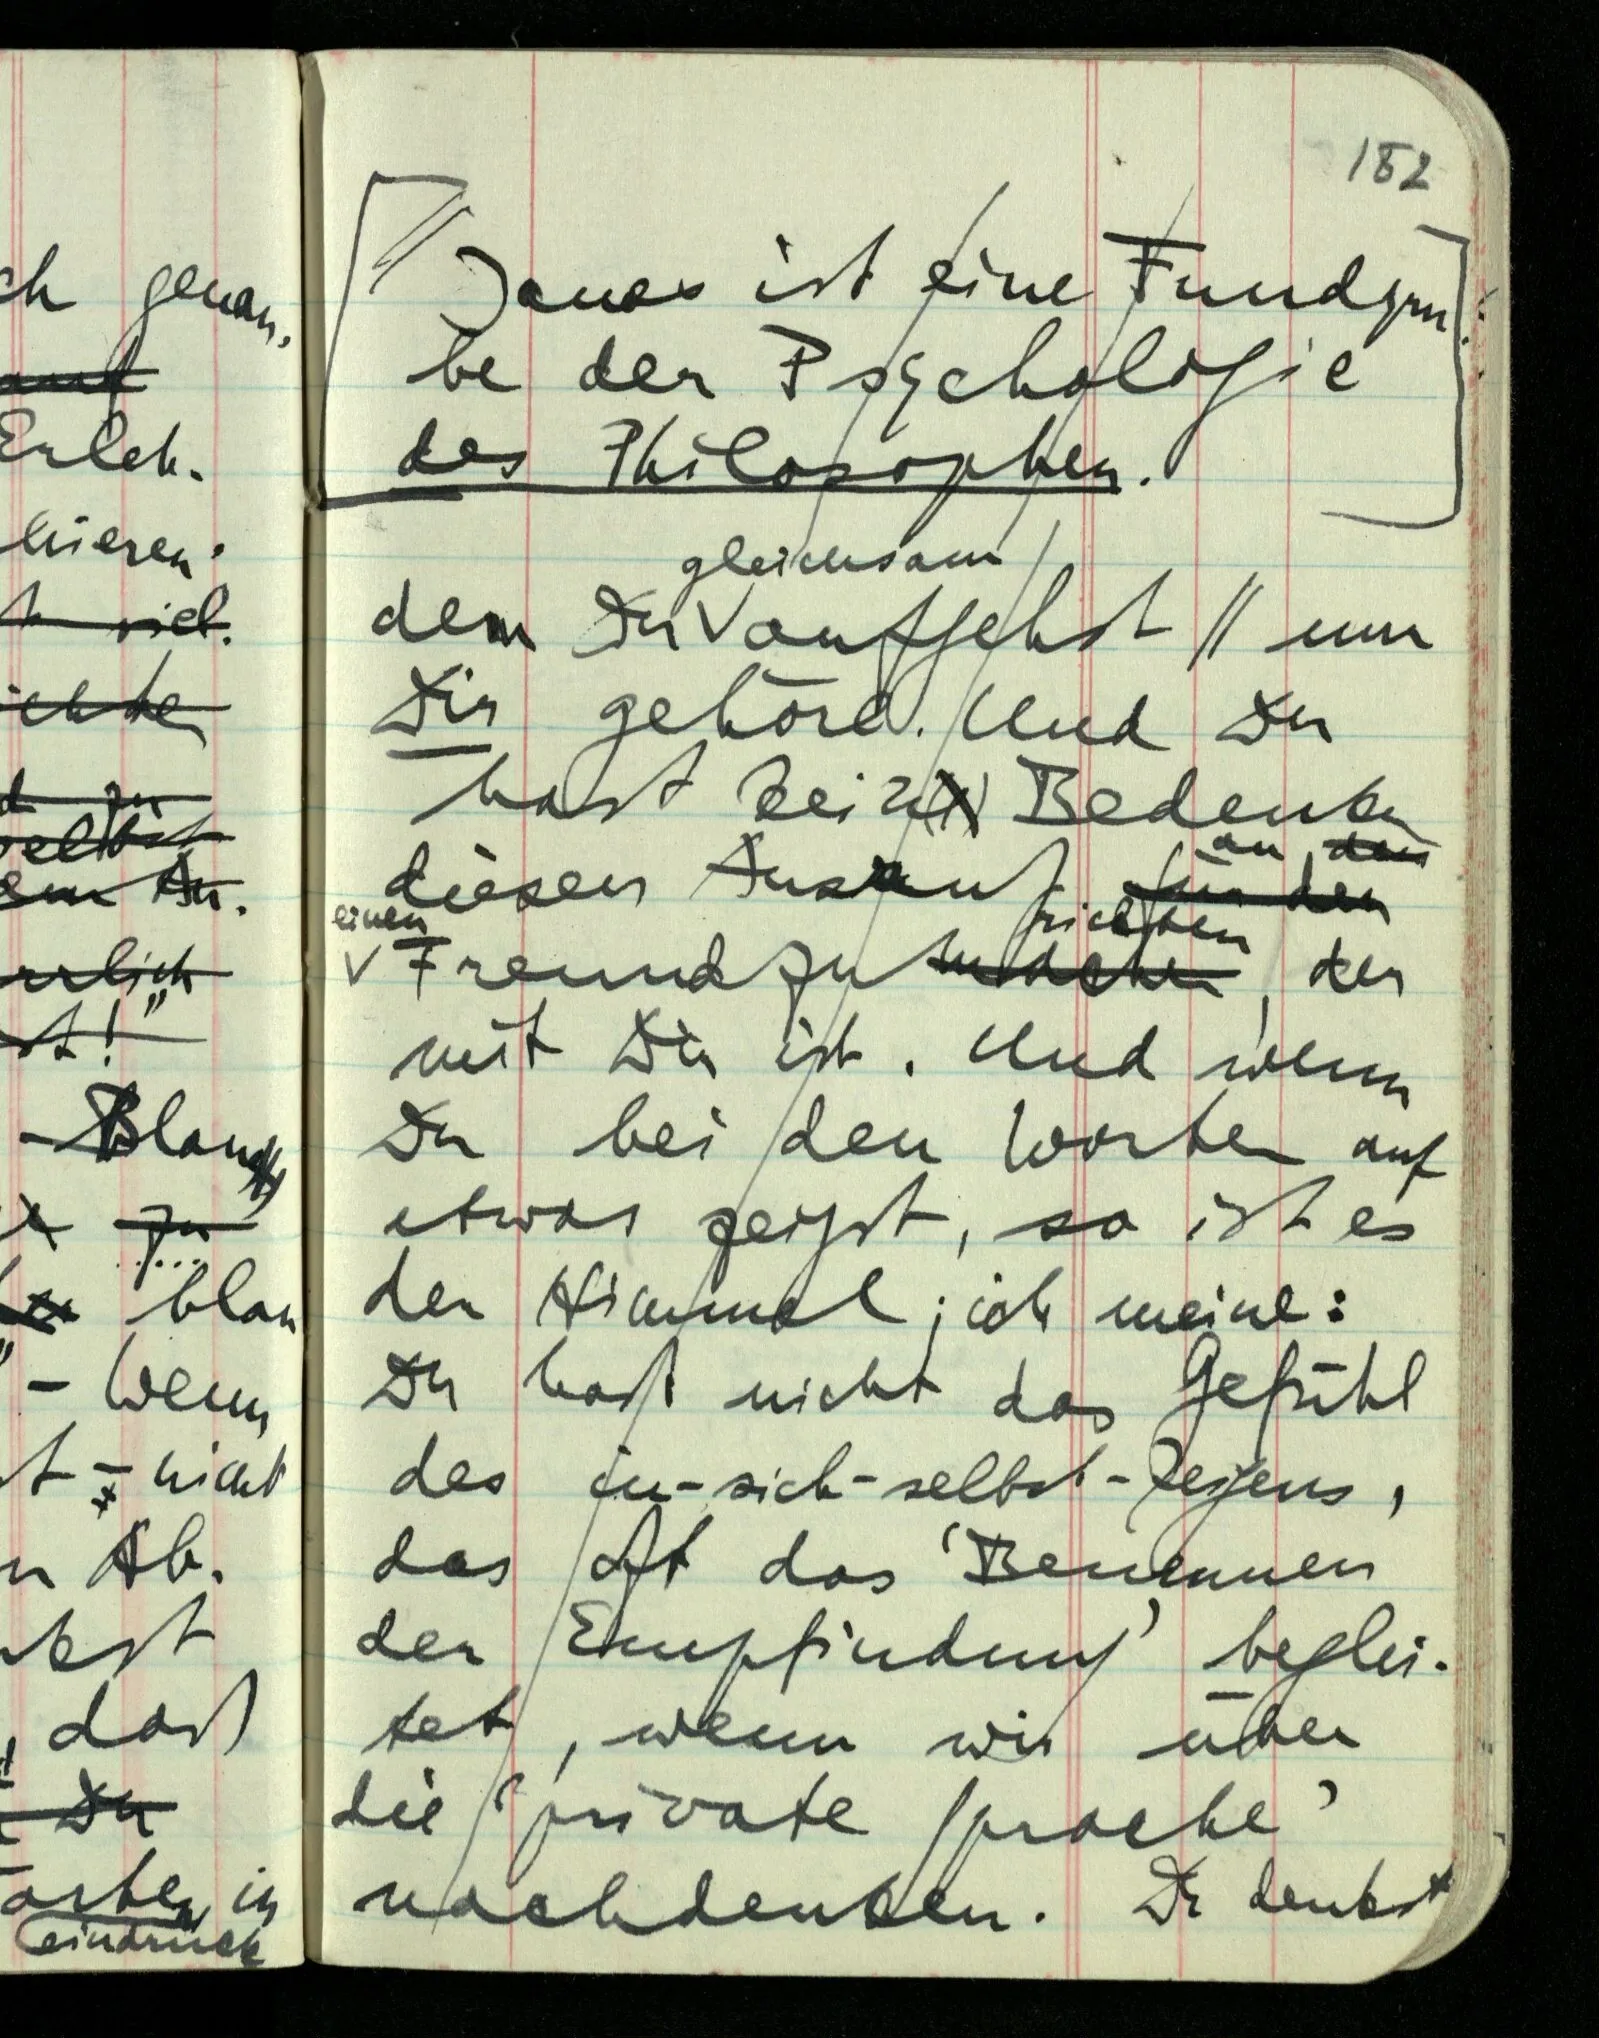 ch genau,
auf
Erleb-
hieren.
viel.
selbst
Au-
st!"
- Blau
zu
blau
- Wenn
t - nicht
n Ab-
kst
, daß
Du
in
eindruck
182
[// James ist eine Fundgru-
be der Psychologie
des Philosophen.]
gleichsam
dem Du ∨ aufgehst // nur
Dir gehöre. Und Du
hast kein Bedenken
an den
diesen Ausruf für den
einen richten
∨ Freund zu machen, der
mit Dir ist. Und wenn
Du bei den Worten auf
etwas zeigst, so ist es
der Himmel; ich meine:
Du hast nicht das Gefühl
des in-sich-selbst-Zeigens,
das oft das ‘Benennen
der Empfindung’ beglei-
tet, wenn wir über
die ‘private Sprache’
nachdenken. Du denkst